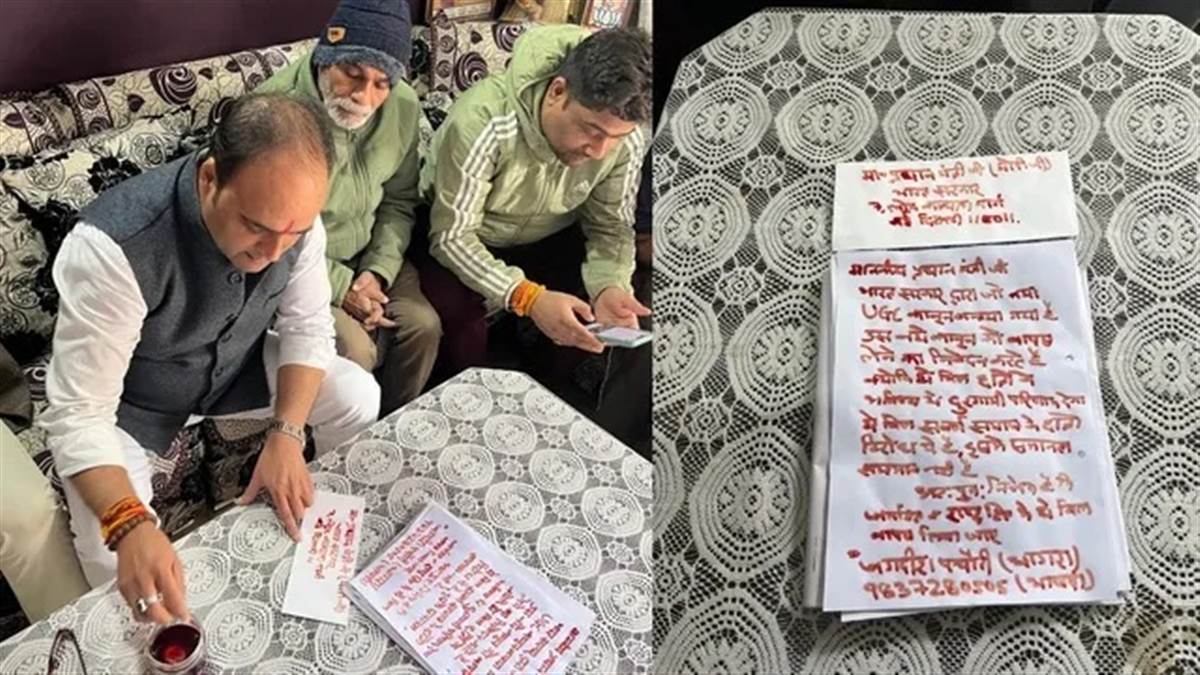 मा॰ प्रधान मंत्री जी (मोदी जी)
भारत सरकार
7, लोक कल्याण मार्ग
नई दिल्ली 110011.
माननीय प्रधान मंत्री जी
भारत सरकार द्वारा जो नया
UGC कानून बनाया गया है
उस नये कानून को वापस
लेने का निवेदन करते है
क्योकि ये बिल
भविष्य में दुरगामी परिणाम देगा
ये बिल सवर्ण समाज के
विरोध में है, इससे
समाज नही है
अतः पुनः निवेदन है की
राष्ट्र हित में ये बिल
वापस लिया जाए
जगदीश पचौरी (आगरा)
9837280505 (भाजपा)